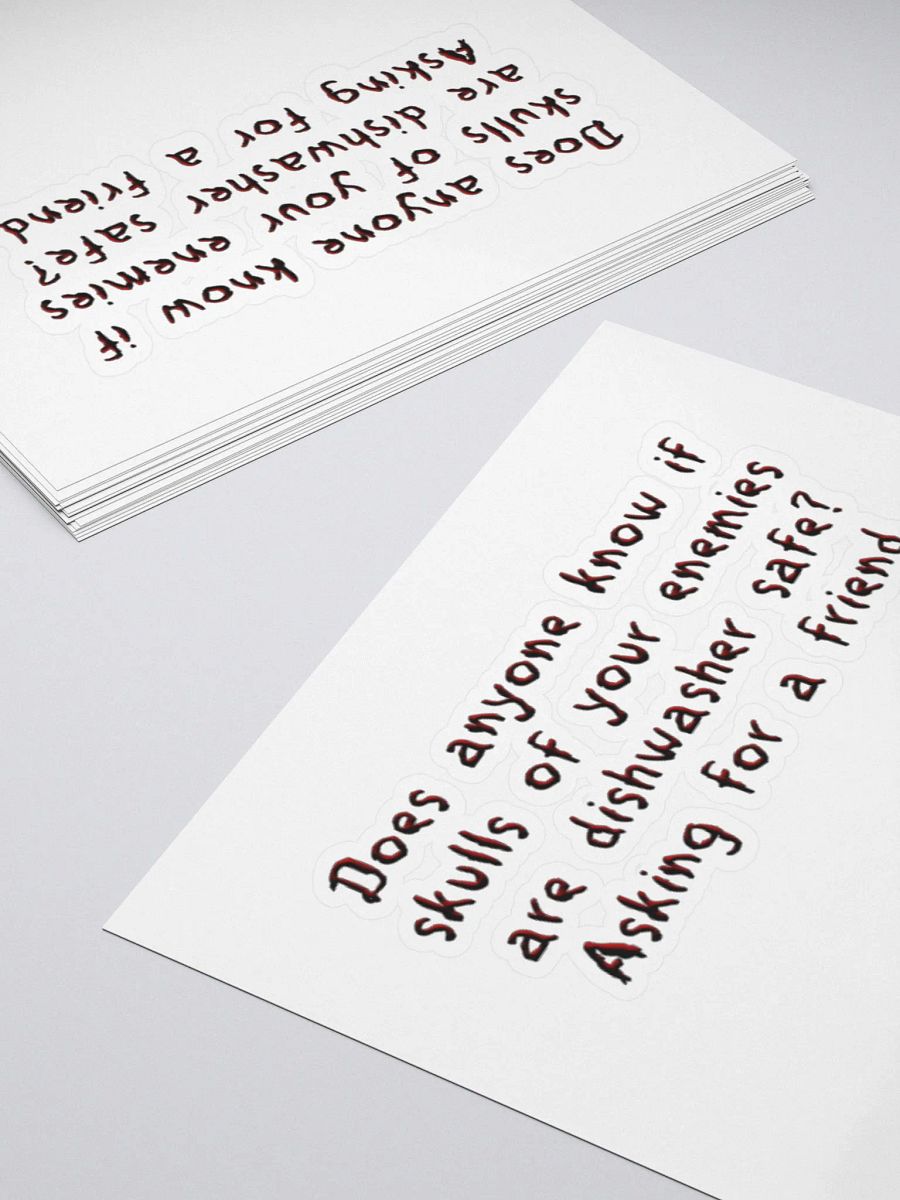 Does anyone know if
skulls of your enemies
are dishwasher safe?
Asking for a friend
Does anyone know if
skulls of your enemies
are dishwasher safe?
Asking for a friend